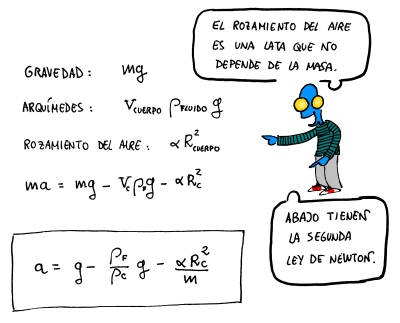 EL ROZAMIENTO DEL AIRE
ES UNA LATA QUE NO
DEPENDE DE LA MASA.
GRAVEDAD: mg
ARQUÍMEDES: V_CUERPO ρ_FLUIDO g
ROZAMIENTO DEL AIRE: αR²_CUERPO
ma = mg - V_c ρ_F g - αR_c²
a = g - ρ_F/ρ_C g - αR_C²/m
ABAJO TIENEN
LA SEGUNDA
LEY DE NEWTON.